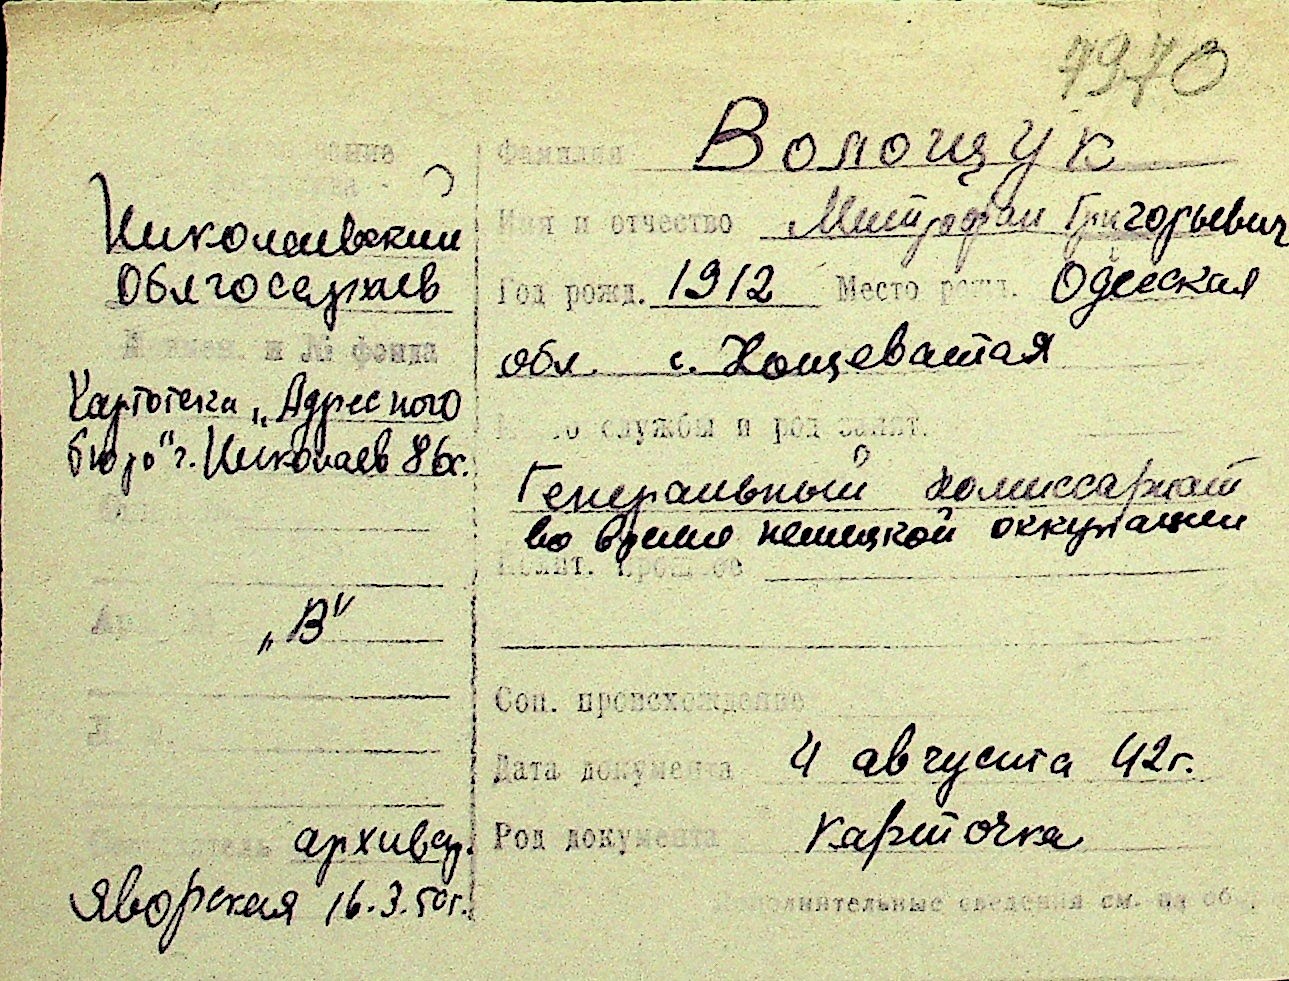 7970
Николаевский
Облгосархив
Наимен. и № фонда
Картотека „Адресного
бюро" г. Николаев 86х.
„В"
архивар.
Яворская 16.3.50г.
Фамилия Волощук
Имя и отчество Митрофан Григорьевич
Год рожд. 1912 Место рожд. Одесская
обл. с. Хощеватая
службы и род занят.
Генеральный комиссариат
во время немецкой оккупации
Полит. прошлое
Соц. происхождение
Дата документа 4 августа 42г.
Род документа карточка
Дополнительные сведения см. на об